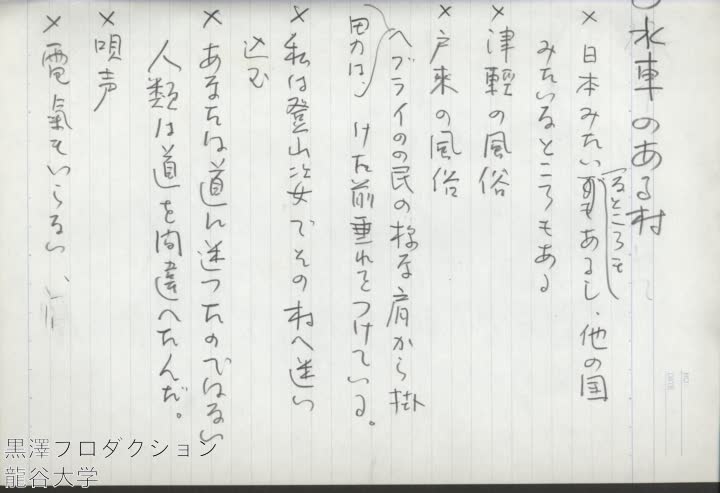 ○水車のある村
× 日本みたいなところもあるし、他の国
みたいなところもある
× 津軽の風俗
× 戸来の風俗
ヘブライの民の様な肩から掛
けた前垂れをつけている。
男は、
× 私は登山 女でその村へ迷い
込む
× あなたは道に迷つたのではない
人類は道を間違へたんだ。
× 唄声
× 電氣もいらない、
黒澤プロダクション
龍谷大学